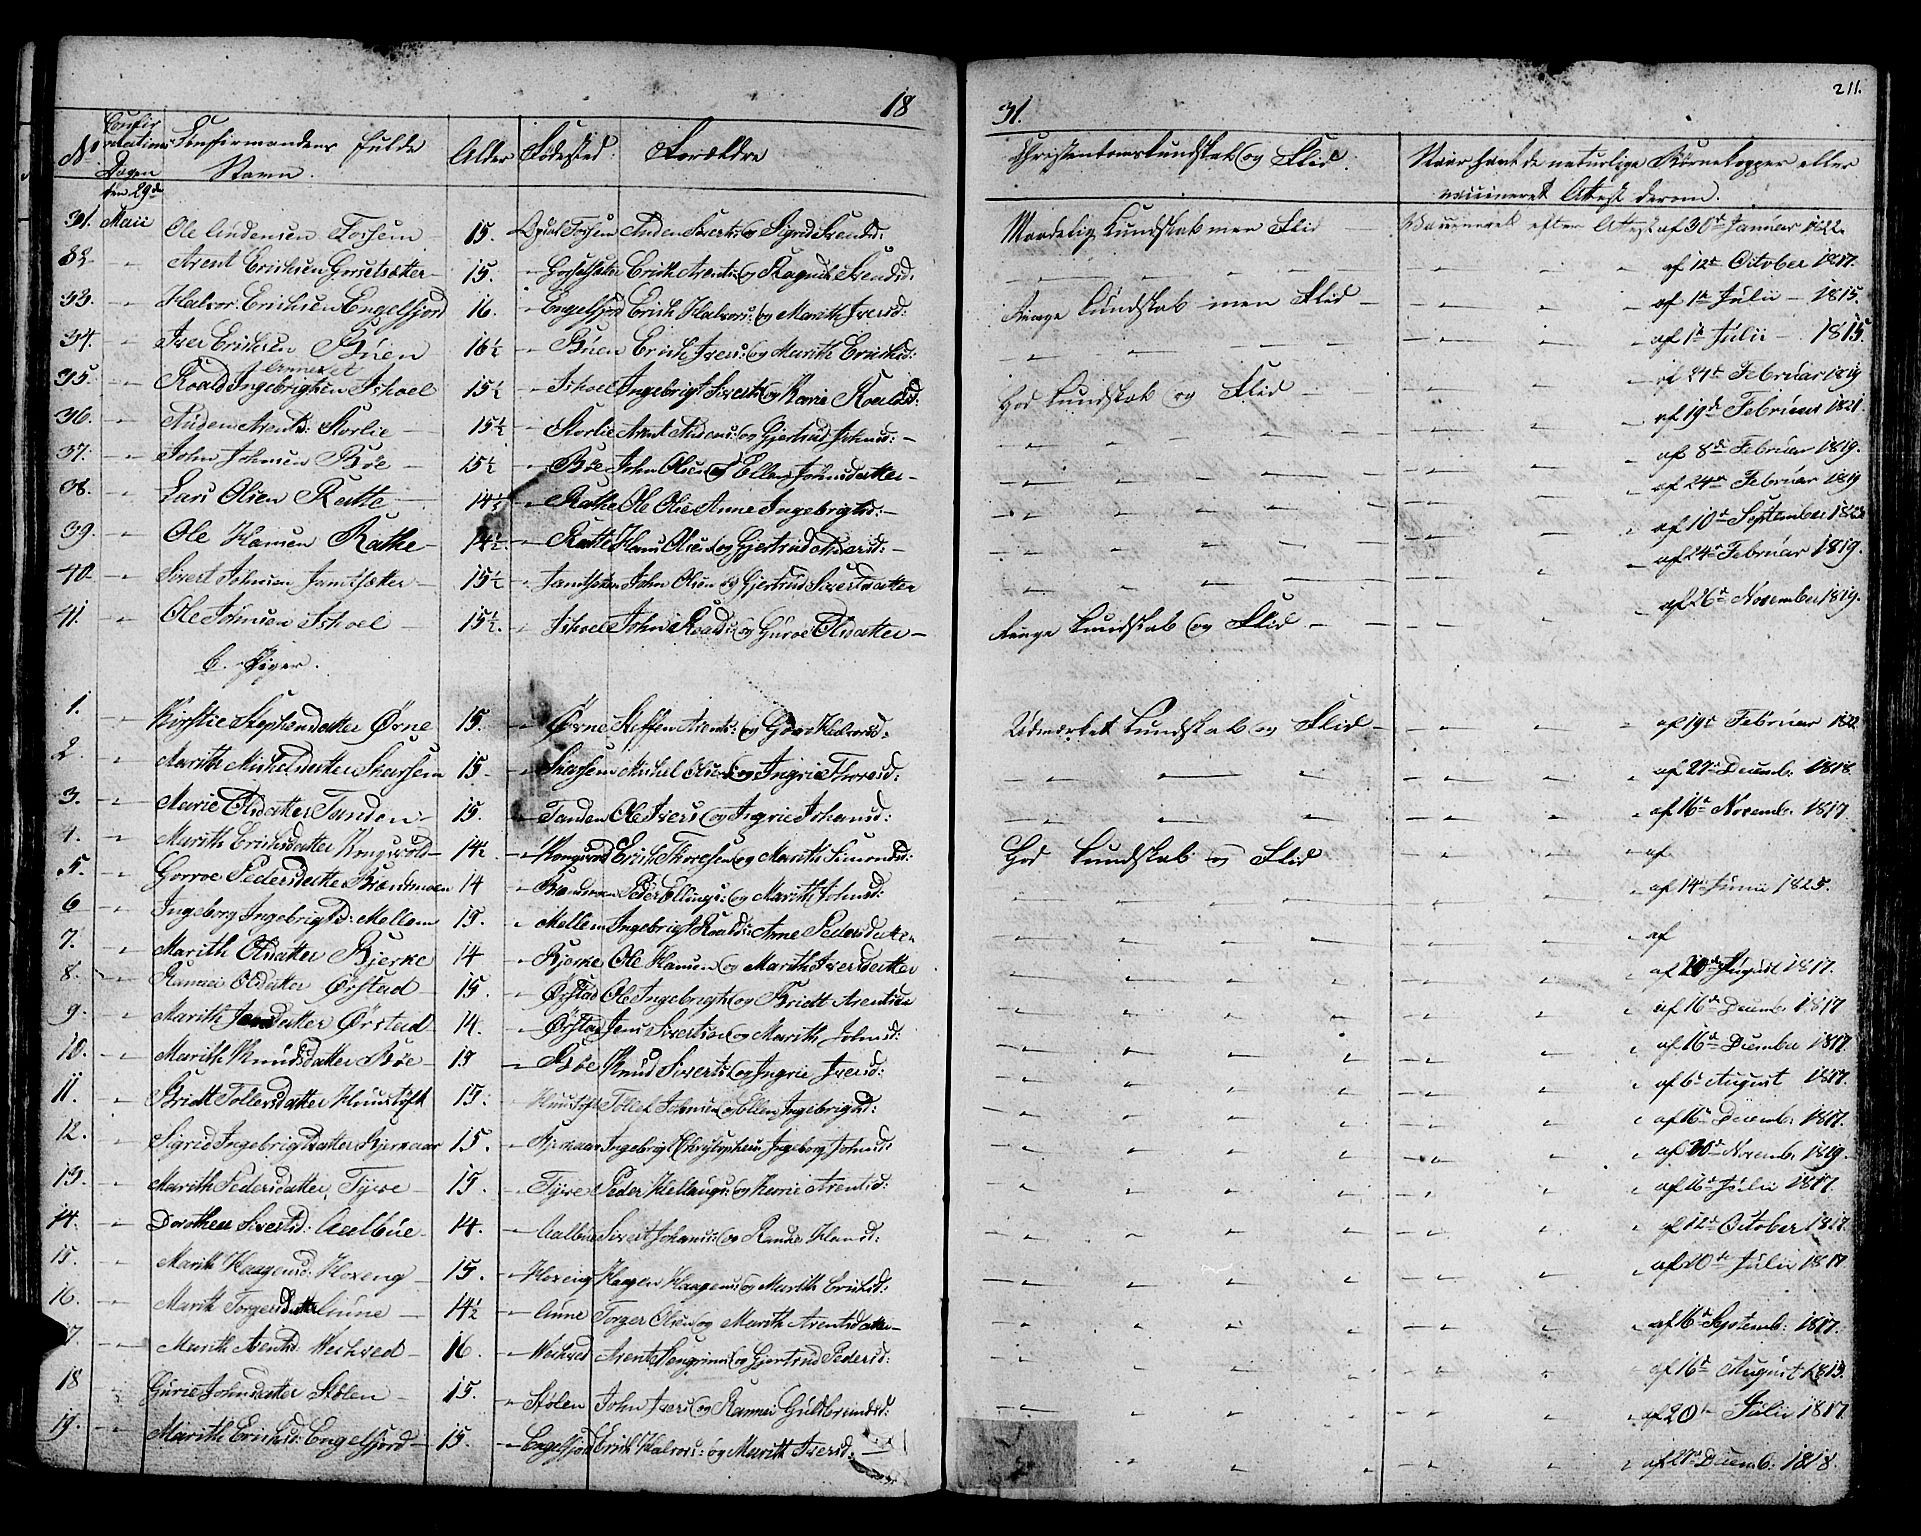 18 31. 211.
No Confirmations Dagen Confirmandens fulde Navn. Alder Fødested. Forældre Christendomskundskab og Flid. Naar havt de naturlige Børnekopper eller vaccineret Attest derom.
den 29de
31. Maii Ole Andensen Forsem 15. Forsem Anden Siverts: og Sigrid Svendsd: Maadelig Kundskab men Flid Vaccineret efter Attest af 30te Januar 1822.
32 Arent Erichsen 15. Erich Arents: og Svendsd: af 12te October 1817.
33. Halvor Erichsen Engelsfjord 16. Engelsfjord Erich Halvors: og Marith Iversd: Ringe Kundskab men Flid af 1te Julii 1815.
34. Iver Erichsen Büen 16½ Büen Erich Ivers: og Marith Erichsd: af 1te Julii 1815.
annexet
35. Roald Ingebrigtsen Ishoel 15½ Ishoel Ingebrigt Siverts: og Karie Roaldsd: God Kundskab og Flid af 24de Februar 1819
36. Anden Arents: Storlie 15½ Storlie Arent Andens: og Gjertrud Johnsd: af 19de Februar 1821.
37. John Johnsen Böe 15½ Böe John Olsen og Ellen Johnsdatter af 8de Februar 1819.
38. Lars Olsen Rathe 14½ Rathe Ole Anne Ingebrigtsd: af 24de Februar 1819
39. Ole Hansen Rathe 14½. Rathe Hans Olsen og Gjertrud af 10de September
40 Sivert Johnsen Jamtsæter 15½ Jamtsæter John Olsen og Gjertrud Sivertsdatter af 24de Februar 1819.
41. Ole Johnsen Ishoel 15½. Ishoel John Roalds: og Guroe Olsdatter Ringe Kundskab og Flid af 26de November 1819.
b. Piger.
1. Kirstie Stephensdatter Ørne 15. Ørne Steffen Arents: og Halvorsd: Udmærket Kundskab og Flid af 19de Februar
2. Marith Michelsdatter Skarsem 15. Skarsem Michel og Ingrie Thoresd: af 27de Decemb: 1818.
3. Marie Olsdatter Tanden 15. Tanden Ole Ivers: og Ingrie Johansd: af 16de Novemb: 1817.
4. Marith Erichsdatter Kongsvold 14½ Kongsvold Erich Thoresen og Marith Simonsd: God Kundskab og Flid af
5. Gorroe Pedersdatter Brændmoen 14 Brændmoen Peder Ellings: og Marith Johnsd: af 14de Junii 1825.
6 Ingeborg Ingebrigtsd: Mellem 15. Mellem Ingebrigt Roalds: Anne Pedersdatter af
7. Marith Olsdatter Bjerke 14 Bjerke Ole Hansen og Marith Iversdatter af August 1817.
8. Rannei Olsdatter Ørstad 15. Ørstad Ole Ingebrigts: og Bridt Arentsen af 16de Decemb: 1817
9. Marith Jensdatter Ørstad 14. Ørstad Jens Sivertsen og Marith Johnsd: af 16de Decembr 1817.
10. Marith Knudsdatter Böe 15 Böe Knud Siverts: og Ingrie Iversd: af 6te August 1817.
11. Bridt Tollefsdatter 15. Tollef Johnsen og Ellen Ingebrigtsd: af 16de Decembr 1817.
12. Sigrid Ingebrigtsdatter 15. Ingebrigt Christophersen Ingeborg Johnsd: af Novemb: 1819
13. Marith Pedersdatter Tyve 15. Tyve Peder Hellaugs: og Karie Arentsd: af 16de Julii 1817.
14. Dorothea Sivertsd: Aalbüe 14. Aalbüe Sivert Johans: og Hansd: af 12te October 1817.
15. Marith Haagensd: Horeng 15. Horeng Haagen Haagens: og Marith Erichsd: af 20de Julii 1817
16. Marith Torgersdatter Aune 14½ Aune Torger Olsen og Marith Arentsdatter af 16de Septemb: 1817.
17 Marith Arentsd: Weihved 16. Weihved Arent og Gjertrud Pedersd: af 16de August 1815.
18 Gurie Johnsdatter Stölen 15. Stölen John Ivers: og Rannei Guldbrandsd: af 20de Julii 1817.
19. Marith Erichsd: Engelsfjord 15. Engelsfjord Erich Halvors: og Marith Iversd: af 27de Decemb: 1818.